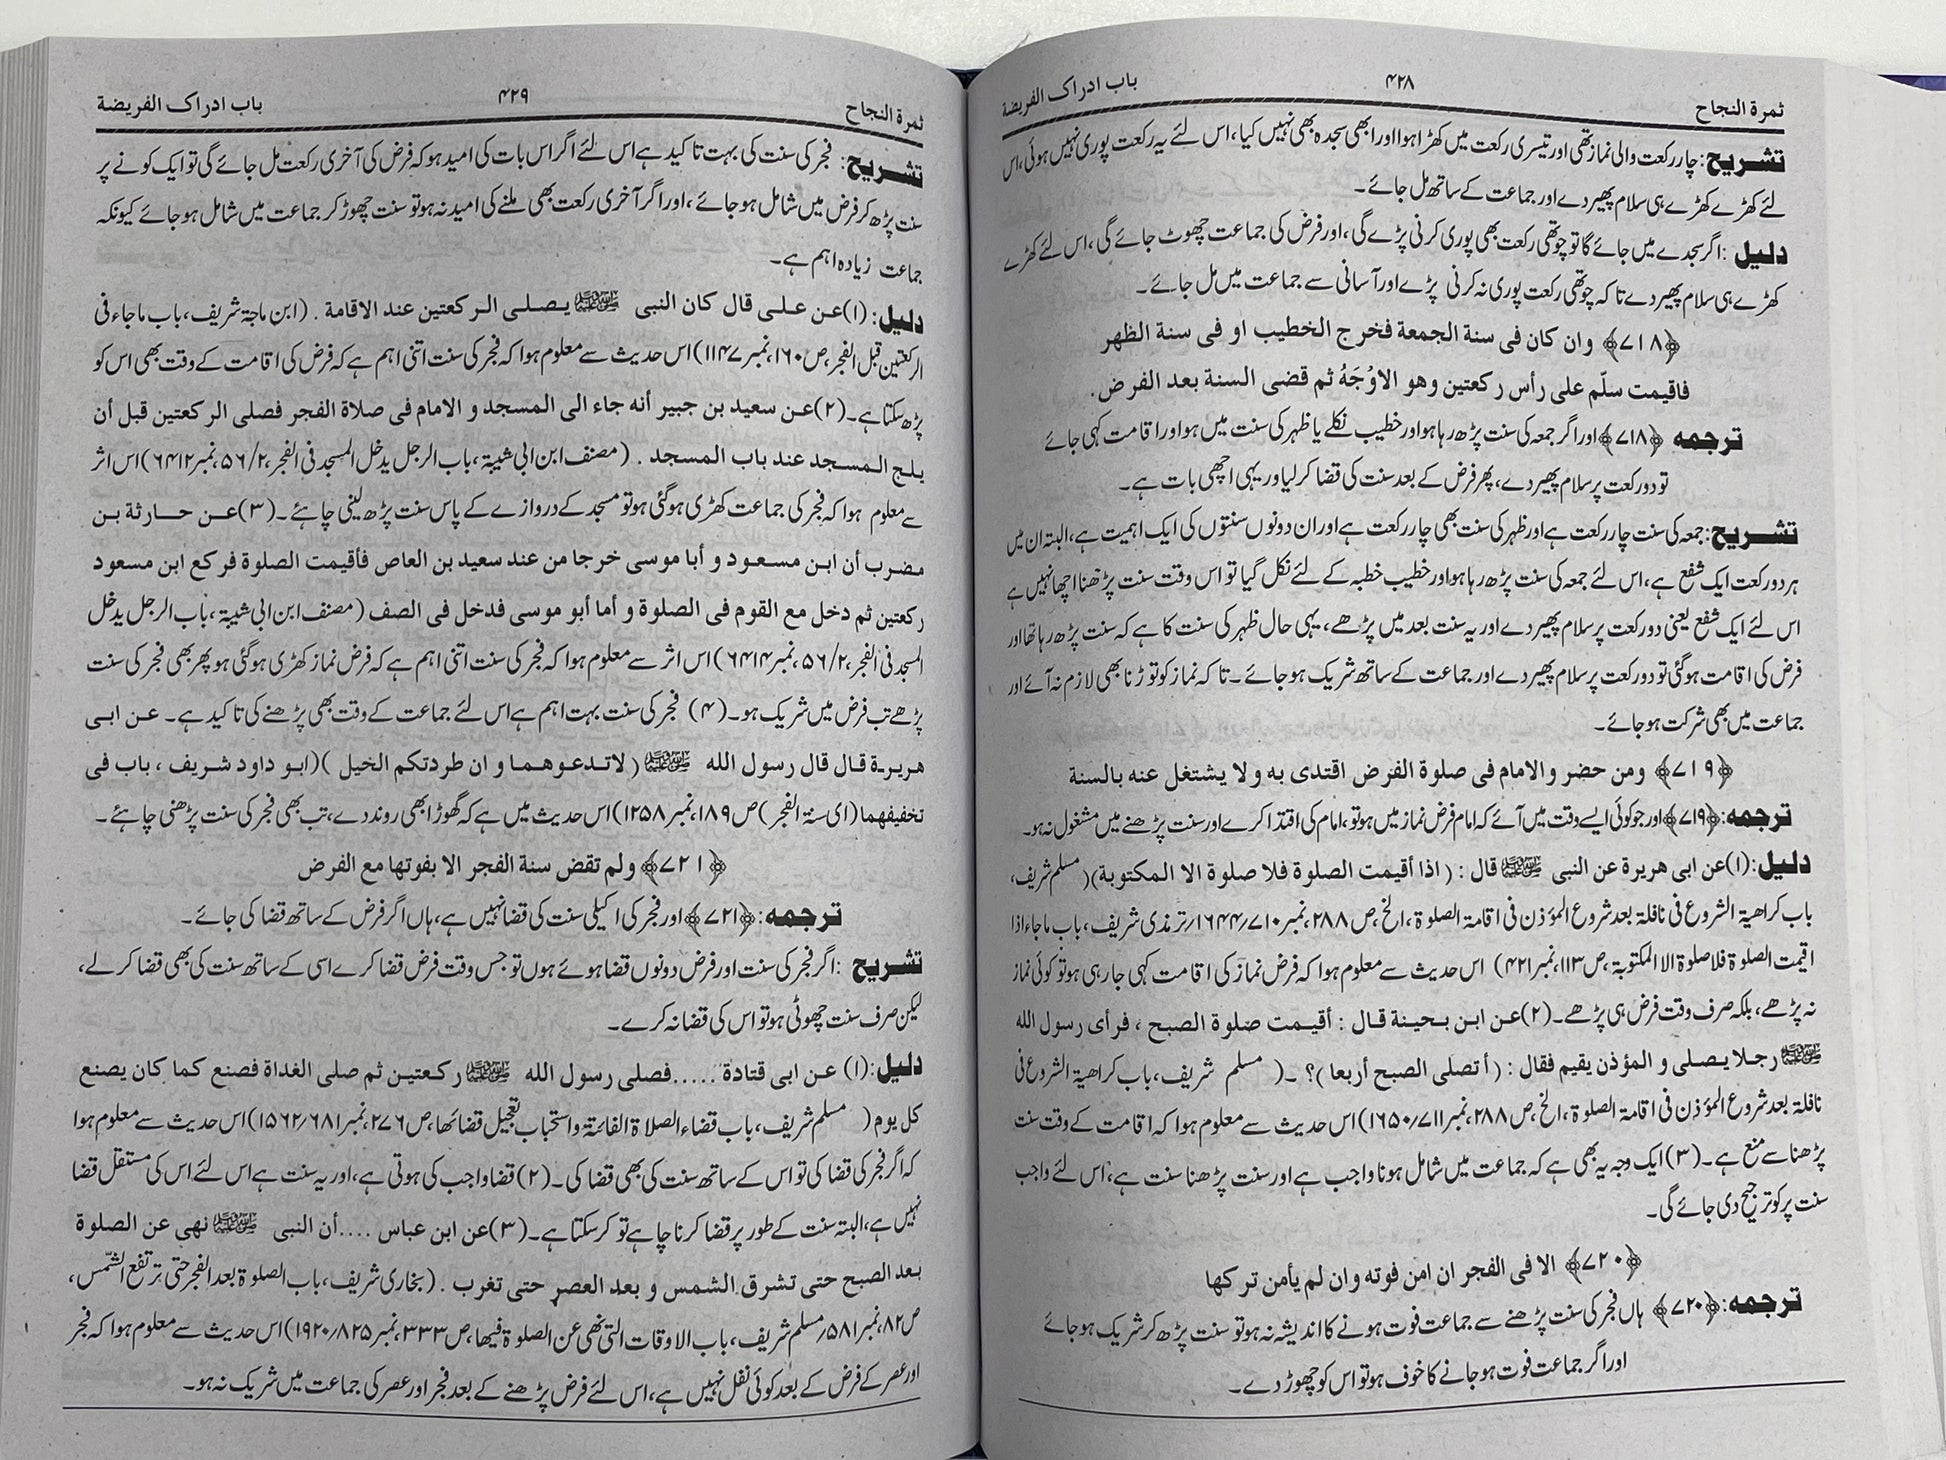 ثمرة النجاح ۴۲۸ باب ادراک الفریضة
تشریح: چار رکعت والی نماز تھی اور تیسری رکعت میں کھڑا ہوا اور ابھی سجدہ بھی نہیں کیا، اس لئے یہ رکعت پوری نہیں ہوئی، اس
لئے کھڑے کھڑے ہی سلام پھیر دے اور جماعت کے ساتھ مل جائے۔
دلیل: اگر سجدے میں جائے گا تو چوتھی رکعت بھی پوری کرنی پڑے گی، اور فرض کی جماعت چھوٹ جائے گی، اس لئے کھڑے
کھڑے ہی سلام پھیر دے تاکہ چوتھی رکعت پوری نہ کرنی پڑے اور آسانی سے جماعت میں مل جائے۔
﴿۷۱۸﴾ وان کان فی سنة الجمعة فخرج الخطیب او فی سنة الظهر
فاقیمت سلّم علی رأس رکعتین وهو الاوْجَهُ ثم قضی السنة بعد الفرض.
ترجمه ﴿۷۱۸﴾ اور اگر جمعہ کی سنت پڑھ رہا ہو اور خطیب نکلے یا ظہر کی سنت میں ہو اور اقامت کہی جائے
تو دو رکعت پر سلام پھیر دے، پھر فرض کے بعد سنت کی قضا کر لیا اور یہی اچھی بات ہے۔
تشریح: جمعہ کی سنت چار رکعت ہے اور ظہر کی سنت بھی چار رکعت ہے اور ان دونوں سنتوں کی ایک اہمیت ہے، البتہ ان میں
ہر دو رکعت ایک شفع ہے، اس لئے جمعہ کی سنت پڑھ رہا ہو اور خطیب خطبہ کے لئے نکل گیا تو اس وقت سنت پڑھنا اچھا نہیں ہے
اس لئے ایک شفع یعنی دو رکعت پر سلام پھیر دے اور یہ سنت بعد میں پڑھے، یہی حال ظہر کی سنت کا ہے کہ سنت پڑھ رہا تھا اور
فرض کی اقامت ہو گئی تو دو رکعت پر سلام پھیر دے اور جماعت کے ساتھ شریک ہو جائے۔ تاکہ نماز کو توڑنا بھی لازم نہ آئے اور
جماعت میں بھی شرکت ہو جائے۔
﴿۷۱۹﴾ ومن حضر والامام فی صلوة الفرض اقتدی به ولا یشتغل عنه بالسنة
ترجمه: ﴿۷۱۹﴾ اور جو کوئی ایسے وقت میں آئے کہ امام فرض نماز میں ہو تو، امام کی اقتدا کرے اور سنت پڑھنے میں مشغول نہ ہو۔
دلیل: (۱) عن ابی هریرة عن النبی ﷺ قال : (اذا أقیمت الصلوة فلا صلوة الا المکتوبة) (مسلم شریف،
باب کراهیة الشروع فی نافلة بعد شروع المؤذن فی اقامة الصلوة، الخ، ص ۲۸۸، نمبر ۷۱۰/۱۶۴۴/ ترمذی شریف، باب ما جاء اذا
اقیمت الصلوة فلا صلوة الا المکتوبة، ص ۱۱۳، نمبر ۴۲۱) اس حدیث سے معلوم ہوا کہ فرض نماز کی اقامت کہی جارہی ہو تو کوئی نماز
نہ پڑھے، بلکہ صرف وقت فرض ہی پڑھے۔ (۲) عن ابن بحینة قال : أقیمت صلوة الصبح ، فرأی رسول الله
ﷺ رجلا یصلی و المؤذن یقیم فقال : (أتصلی الصبح أربعا)؟ ۔ (مسلم شریف، باب کراهیة الشروع فی
نافلة بعد شروع المؤذن فی اقامة الصلوة، الخ، ص ۲۸۸، نمبر ۷۱۱/۱۶۵۰) اس حدیث سے معلوم ہوا کہ اقامت کے وقت سنت
پڑھنا سے منع ہے۔ (۳) ایک وجہ یہ بھی ہے کہ جماعت میں شامل ہونا واجب ہے اور سنت پڑھنا سنت ہے، اس لئے واجب
سنت پر کو ترجیح دی جائے گی۔
﴿۷۲۰﴾ الا فی الفجر ان امن فوته وان لم یأمن ترکها
ترجمه: ﴿۷۲۰﴾ ہاں فجر کی سنت پڑھنے سے جماعت فوت ہونے کا اندیشہ نہ ہو تو سنت پڑھ کر شریک ہو جائے
اور اگر جماعت فوت ہو جانے کا خوف ہو تو اس کو چھوڑ دے۔
ثمرة النجاح ۴۲۹ باب ادراک الفریضة
تشریح: فجر کی سنت کی بہت تاکید ہے اس لئے اگر اس بات کی امید ہو کہ فرض کی آخری رکعت مل جائے گی تو ایک کونے پر
سنت پڑھ کر فرض میں شامل ہو جائے، اور اگر آخری رکعت بھی ملنے کی امید نہ ہو تو سنت چھوڑ کر جماعت میں شامل ہو جائے کیونکہ
جماعت زیادہ اہم ہے۔
دلیل: (۱) عن علی قال کان النبی ﷺ یصلی الرکعتین عند الاقامة . (ابن ماجة شریف، باب ما جاء فی
الرکعتین قبل الفجر، ص ۱۶۰، نمبر ۱۱۴۷) اس حدیث سے معلوم ہوا کہ فجر کی سنت اتنی اہم ہے کہ فرض کی اقامت کے وقت بھی اس کو
پڑھ سکتا ہے۔ (۲) عن سعید بن جبیر أنه جاء الی المسجد و الامام فی صلاة الفجر فصلی الرکعتین قبل أن
یلج المسجد عند باب المسجد . (مصنف ابن ابی شیبة، باب الرجل یدخل المسجد فی الفجر، ۵۶/۲، نمبر ۶۴۱۲) اس اثر
سے معلوم ہوا کہ فجر کی جماعت کھڑی ہو گئی ہو تو مسجد کے دروازے کے پاس سنت پڑھ لینی چاہئے۔ (۳) عن حارثة بن
مضرب أن ابن مسعود و أبا موسی خرجا من عند سعید بن العاص فأقیمت الصلوة فرکع ابن مسعود
رکعتین ثم دخل مع القوم فی الصلوة و أما أبو موسی فدخل فی الصف (مصنف ابن ابی شیبة، باب الرجل یدخل
المسجد فی الفجر، ۵۶/۲، نمبر ۶۴۱۴) اس اثر سے معلوم ہوا کہ فجر کی سنت اتنی اہم ہے کہ فرض نماز کھڑی ہو گئی ہو پھر بھی فجر کی سنت
پڑھے تب فرض میں شریک ہو۔ (۴) فجر کی سنت بہت اہم ہے اس لئے جماعت کے وقت بھی پڑھنے کی تاکید ہے۔ عن ابی
هریرة قال قال رسول الله ﷺ (لا تدعوهما و ان طردتکم الخیل) (ابو داود شریف ، باب فی
تخفیفهما (ای سنة الفجر) ص ۱۸۹، نمبر ۱۲۵۸) اس حدیث میں ہے کہ گھوڑا بھی روند دے، تب بھی فجر کی سنت پڑھنی چاہئے۔
﴿۷۲۱﴾ ولم تقض سنة الفجر الا بفوتها مع الفرض
ترجمه: ﴿۷۲۱﴾ اور فجر کی اکیلی سنت کی قضا نہیں ہے، ہاں اگر فرض کے ساتھ قضا کی جائے۔
تشریح : اگر فجر کی سنت اور فرض دونوں قضا ہوئے ہوں تو جس وقت فرض قضا کرے اسی کے ساتھ سنت کی بھی قضا کر لے،
لیکن صرف سنت چھوٹی ہو تو اس کی قضا نہ کرے۔
دلیل: (۱) عن ابی قتادة .....فصلی رسول الله ﷺ رکعتین ثم صلی الغداة فصنع کما کان یصنع
کل یوم (مسلم شریف، باب قضاء الصلاة الفائتة واستحباب تعجیل قضائها، ص ۲۷۶، نمبر ۶۸۱/۱۵۶۲) اس حدیث سے معلوم ہوا
کہ اگر فجر کی قضا کی تو اس کے ساتھ سنت کی بھی قضا کی۔ (۲) قضا واجب کی ہوتی ہے، اور یہ سنت ہے اس لئے اس کی مستقل قضا
نہیں ہے، البتہ سنت کے طور پر قضا کرنا چاہے تو کر سکتا ہے۔ (۳) عن ابن عباس ....أن النبی ﷺ نهی عن الصلوة
بعد الصبح حتی تشرق الشمس و بعد العصر حتی تغرب . (بخاری شریف، باب الصلوة بعد الفجر حتی ترتفع الشمس،
ص ۸۲، نمبر ۵۸۱/ مسلم شریف، باب الاوقات التی نهی عن الصلوة فیها، ص ۳۳۳، نمبر ۸۲۵/۱۹۲۰) اس حدیث سے معلوم ہوا کہ فجر
اور عصر کے فرض کے بعد کوئی نفل نہیں ہے، اس لئے فرض پڑھنے کے بعد فجر اور عصر کی جماعت میں شریک نہ ہو۔